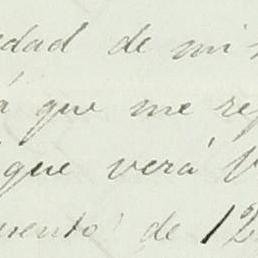 edad de mi
á que me ref
que verá V
mento de 12